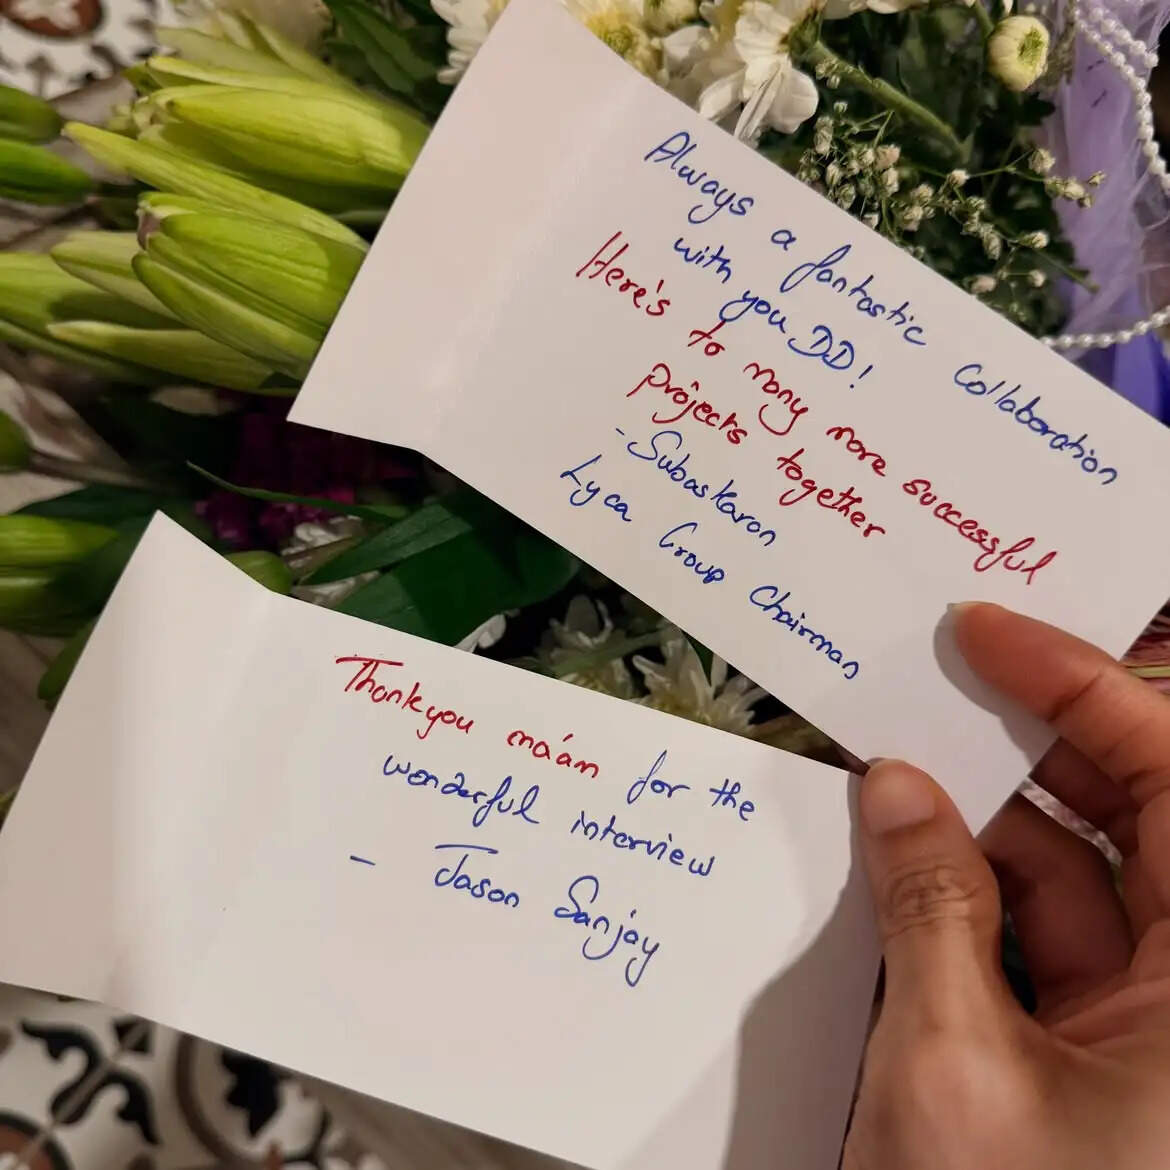 Always a fantastic Collaboration
with you DD!
Here's to many more successful
projects together
- Subaskaran
Lyca Group Chairman
Thankyou ma'am for the
wonderful interview
- Jason Sanjay